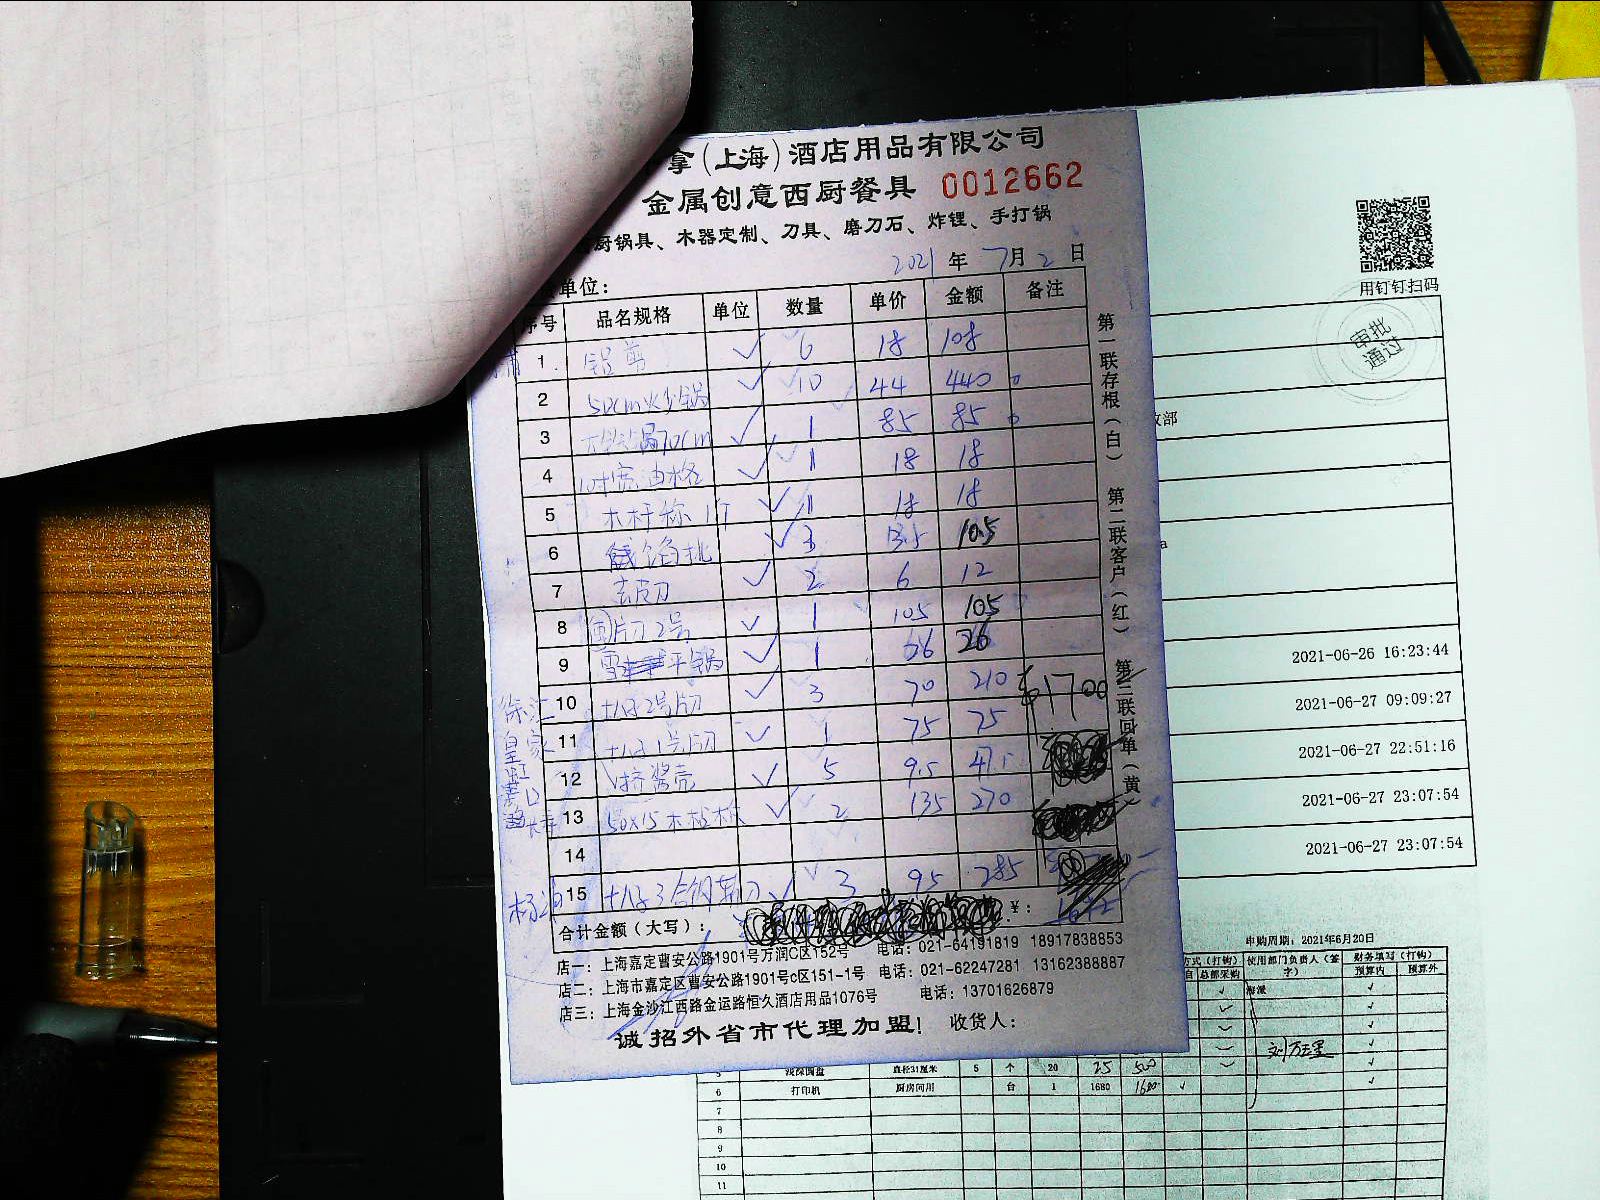 拿(上海)酒店用品有限公司
金属创意西厨餐具 0012662
厨锅具、木器定制、刀具、磨刀石、炸锂、手打锅
2021年7月2日
单位:
序号 品名规格 单位 数量 单价 金额 备注
1 ✓ 6 18 108
2 50cm炒锅 ✓ 10 44 440
3 70cm ✓ 1 85 85
4 10寸宽油格 ✓ 1 18 18
5 木杆称 1斤 ✓ 1 18 18
6 馅挑 ✓ 3 3.5 10.5
7 去皮刀 ✓ 2 6 12
8 片刀2号 ✓ 1 105 105
9 雪平锅 ✓ 1 26 26
10 十八子2号片刀 ✓ 3 70 210 1700
11 十八子1号片刀 ✓ 1 75 75
12 挤酱壳 ✓ 5 9.5 47.5
13 50X15 木 ✓ 2 135 270
14
15 十八子3 ✓ 3 95 285
合计金额(大写): ¥:
店一:上海嘉定曹安公路1901号万润C区152号 电话:021-64191819 18917838853
店二:上海市嘉定区曹安公路1901号c区151-1号 电话:021-62247281 13162388887
店三:上海金沙江西路金运路恒久酒店用品1076号 电话:13701626879
诚招外省市代理加盟! 收货人:
第一联存根(白) 第二联客户(红) 第三联回单(黄)
徐汇
皇家
虹口
用钉钉扫码
审批
通过
部
2021-06-26 16:23:44
2021-06-27 09:09:27
2021-06-27 22:51:16
2021-06-27 23:07:54
2021-06-27 23:07:54
申购周期:2021年6月20日
方式(打钩) 使用部门负责人(签字) 财务填写(打钩)
自 总部采购 预算内 预算外
5 浅深圆盘 直径31厘米 5 个 20 25 500
6 打印机 厨房间用 台 1 1680 1680 ✓
7
8
9
10
11